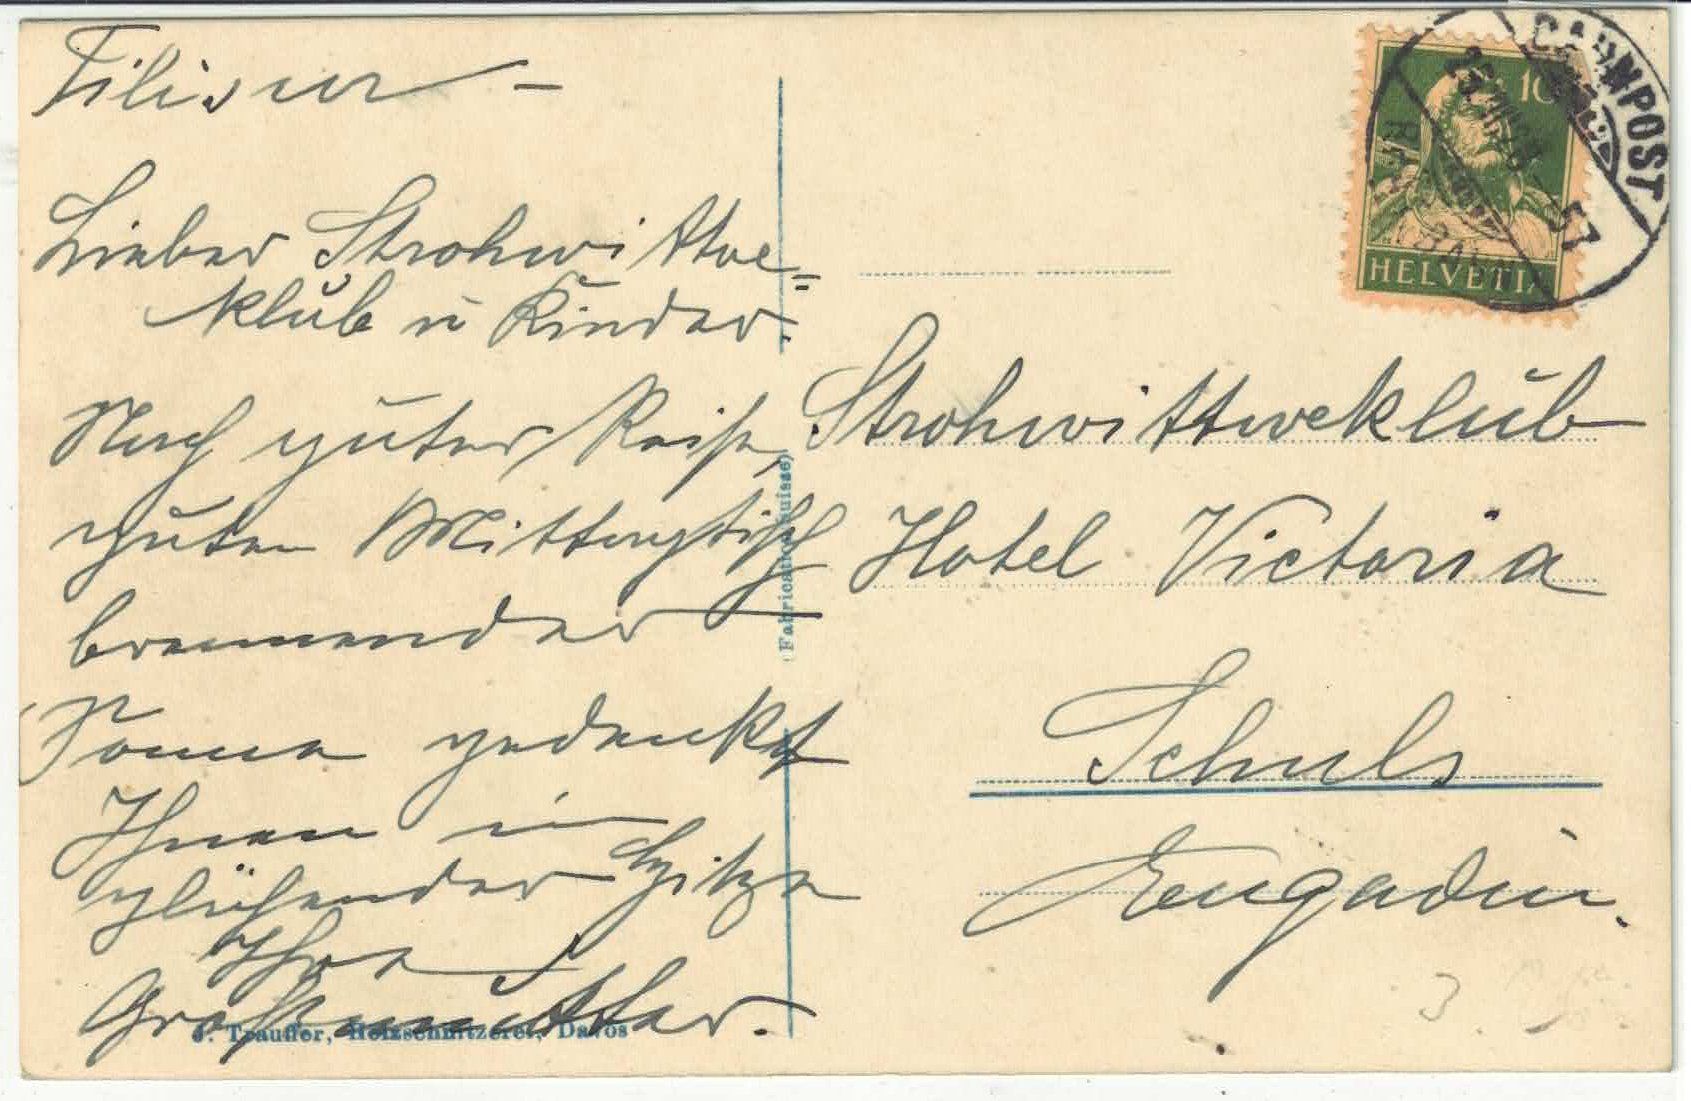 Filisur –
Lieber Strohwittwe=
klub u Kinder.
Nach guter Reise,
guten Mittagstisch
brennender
Sonne gedenkt
Ihnen in
glühender Hitze
Ihre
Großmutter.
J. Trauffer, Holzschnitzerei, Davos
(Fabrication suisse)
10
HELVETIA
BAHNPOST
Strohwittweklub
Hotel Victoria
Schuls
Engadin.
3